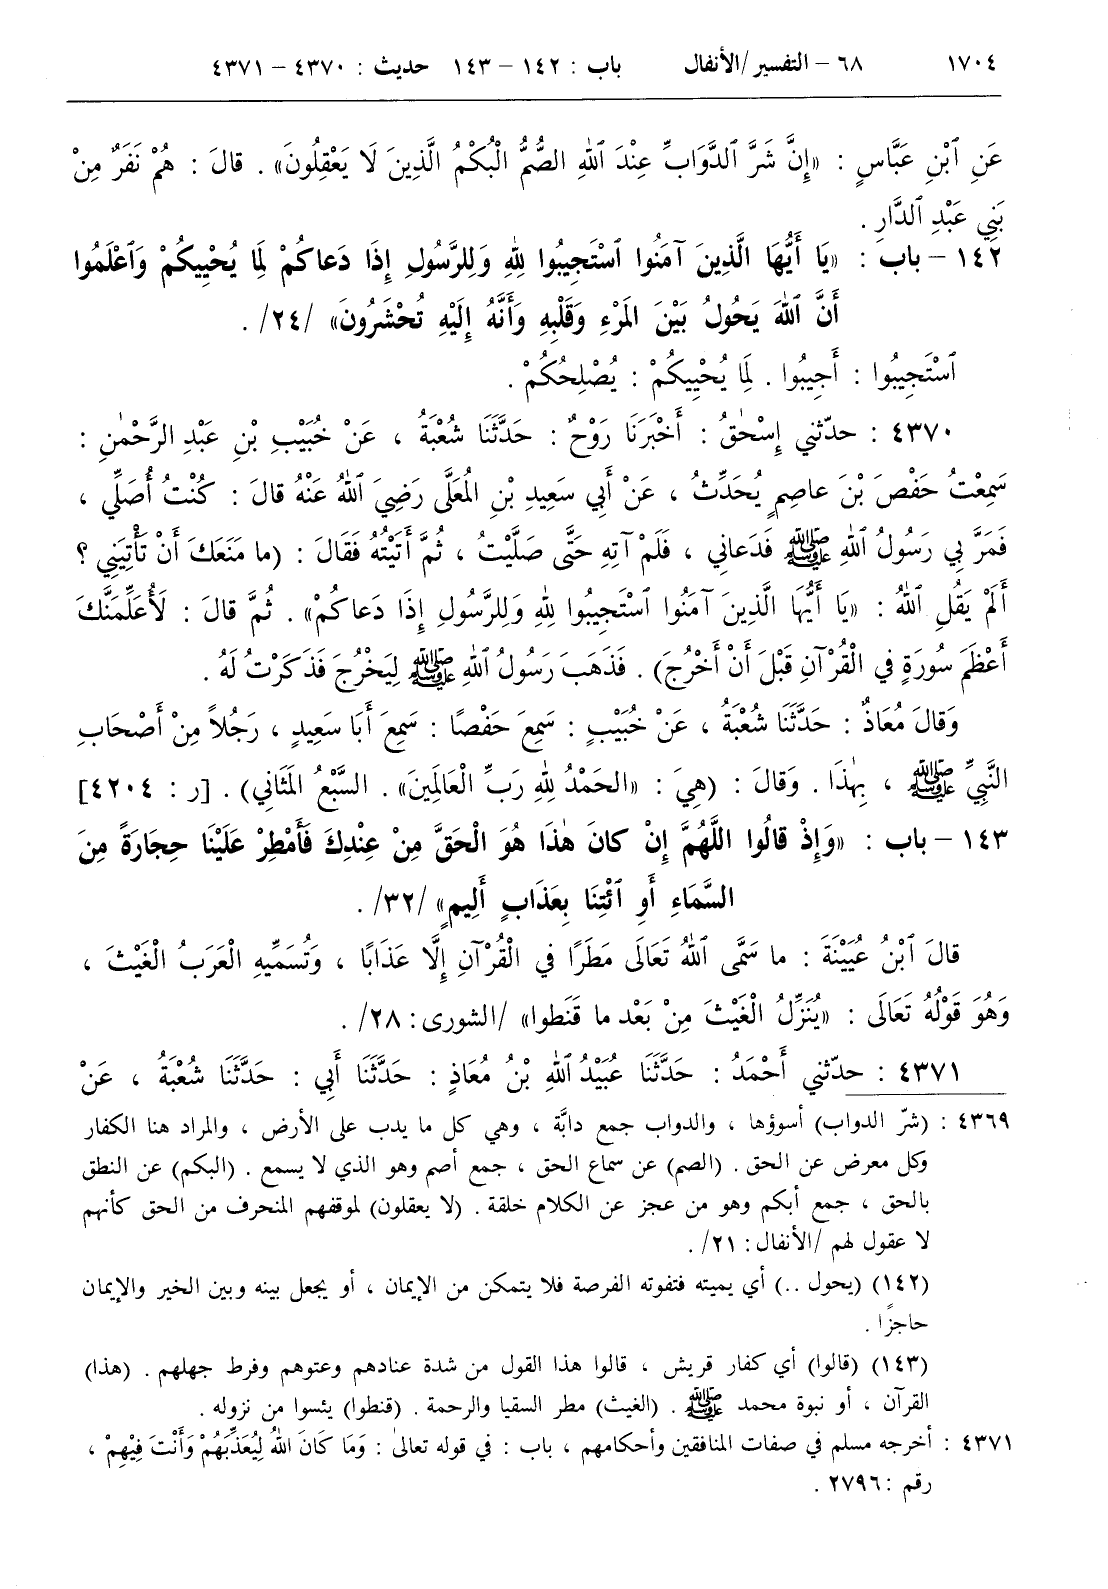 ١٧٠٤ ٦٨ - التفسير/الأنفال باب : ١٤٢ - ١٤٣ حديث : ٤٣٧٠ - ٤٣٧١
عَنِ ٱبْنِ عَبَّاسٍ : «إِنَّ شَرَّ ٱلدَّوَابِّ عِنْدَ ٱللهِ الصُّمُّ الْبُكْمُ الَّذِينَ لَا يَعْقِلُونَ» . قالَ : هُمْ نَفَرٌ مِنْ
بَنِي عَبْدِ ٱلدَّارِ .
١٤٢ - باب : «يَا أَيُّهَا الَّذِينَ آمَنُوا ٱسْتَجِيبُوا لِلهِ وَلِلرَّسُولِ إِذَا دَعاكُمْ لِمَا يُحْيِيكُمْ وَٱعْلَمُوا
أَنَّ ٱللهَ يَحُولُ بَيْنَ المَرْءِ وَقَلْبِهِ وَأَنَّهُ إِلَيْهِ تُحْشَرُونَ» /٢٤/ .
ٱسْتَجِيبُوا : أَجِيبُوا . لِمَا يُحْيِيكُمْ : يُصْلِحُكُمْ .
٤٣٧٠ : حدّثني إِسْحٰقُ : أَخْبَرَنَا رَوْحٌ : حَدَّثَنَا شُعْبَةُ ، عَنْ خُبَيْبِ بْنِ عَبْدِ الرَّحْمٰنِ :
سَمِعْتُ حَفْصَ بْنَ عاصِمٍ يُحَدِّثُ ، عَنْ أَبِي سَعِيدِ بْنِ المُعَلَّى رَضِيَ ٱللهُ عَنْهُ قالَ : كُنْتُ أُصَلِّي ،
فَمَرَّ بِي رَسُولُ ٱللهِ ﷺ فَدَعانِي ، فَلَمْ آتِهِ حَتَّى صَلَّيْتُ ، ثُمَّ أَتَيْتُهُ فَقَالَ : (ما مَنَعَكَ أَنْ تَأْتِيَنِي ؟
أَلَمْ يَقُلِ ٱللهُ : «يَا أَيُّهَا الَّذِينَ آمَنُوا ٱسْتَجِيبُوا لِلهِ وَلِلرَّسُولِ إِذَا دَعاكُمْ» . ثُمَّ قالَ : لَأُعَلِّمَنَّكَ
أَعْظَمَ سُورَةٍ فِي الْقُرْآنِ قَبْلَ أَنْ أَخْرُجَ) . فَذَهَبَ رَسُولُ ٱللهِ ﷺ لِيَخْرُجَ فَذَكَرْتُ لَهُ .
وَقالَ مُعَاذٌ : حَدَّثَنَا شُعْبَةُ ، عَنْ خُبَيْبٍ : سَمِعَ حَفْصًا : سَمِعَ أَبَا سَعِيدٍ ، رَجُلاً مِنْ أَصْحَابِ
النَّبِيِّ ﷺ ، بِهٰذَا . وَقالَ : (هِيَ : «الحَمْدُ لِلهِ رَبِّ الْعَالَمِينَ» . السَّبْعُ المَثَانِي) . [ر : ٤٢٠٤]
١٤٣ - باب : «وَإِذْ قالُوا اللَّهُمَّ إِنْ كانَ هٰذَا هُوَ الْحَقَّ مِنْ عِنْدِكَ فَأَمْطِرْ عَلَيْنَا حِجَارَةً مِنَ
السَّمَاءِ أَوِ ٱئْتِنَا بِعَذَابٍ أَلِيمٍ» /٣٢/ .
قالَ ٱبْنُ عُيَيْنَةَ : ما سَمَّى ٱللهُ تَعَالَى مَطَرًا فِي الْقُرْآنِ إِلَّا عَذَابًا ، وَتُسَمِّيهِ الْعَرَبُ الْغَيْثَ ،
وَهُوَ قَوْلُهُ تَعَالَى : «يُنَزِّلُ الْغَيْثَ مِنْ بَعْدِ ما قَنَطوا» /الشورى: ٢٨/ .
٤٣٧١ : حدّثني أَحْمَدُ : حَدَّثَنَا عُبَيْدُ ٱللهِ بْنُ مُعَاذٍ : حَدَّثَنَا أَبِي : حَدَّثَنَا شُعْبَةُ ، عَنْ
٤٣٦٩ : (شرّ الدواب) أسوؤها ، والدواب جمع دابَّة ، وهي كل ما يدب على الأرض ، والمراد هنا الكفار
وكل معرض عن الحق . (الصم) عن سماع الحق ، جمع أصم وهو الذي لا يسمع . (البكم) عن النطق
بالحق ، جمع أبكم وهو من عجز عن الكلام خلقة . (لا يعقلون) لموقفهم المنحرف من الحق كأنهم
لا عقول لهم /الأنفال: ٢١/ .
(١٤٢) (يحول ..) أي يميته فتفوته الفرصة فلا يتمكن من الإيمان ، أو يجعل بينه وبين الخير والإيمان
حاجزًا .
(١٤٣) (قالوا) أي كفار قريش ، قالوا هذا القول من شدة عنادهم وعتوهم وفرط جهلهم . (هذا)
القرآن ، أو نبوة محمد ﷺ . (الغيث) مطر السقيا والرحمة . (قنطوا) يئسوا من نزوله .
٤٣٧١ : أخرجه مسلم في صفات المنافقين وأحكامهم ، باب : في قوله تعالىٰ : وَمَا كَانَ اللهُ لِيُعَذِّبَهُمْ وَأَنْتَ فِيْهِمْ ،
رقم : ٢٧٩٦ .